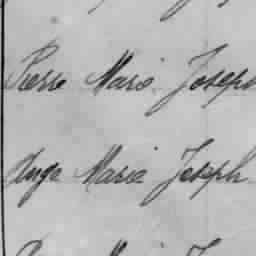 Pierre Marie Joseph
Ange Marie Joseph